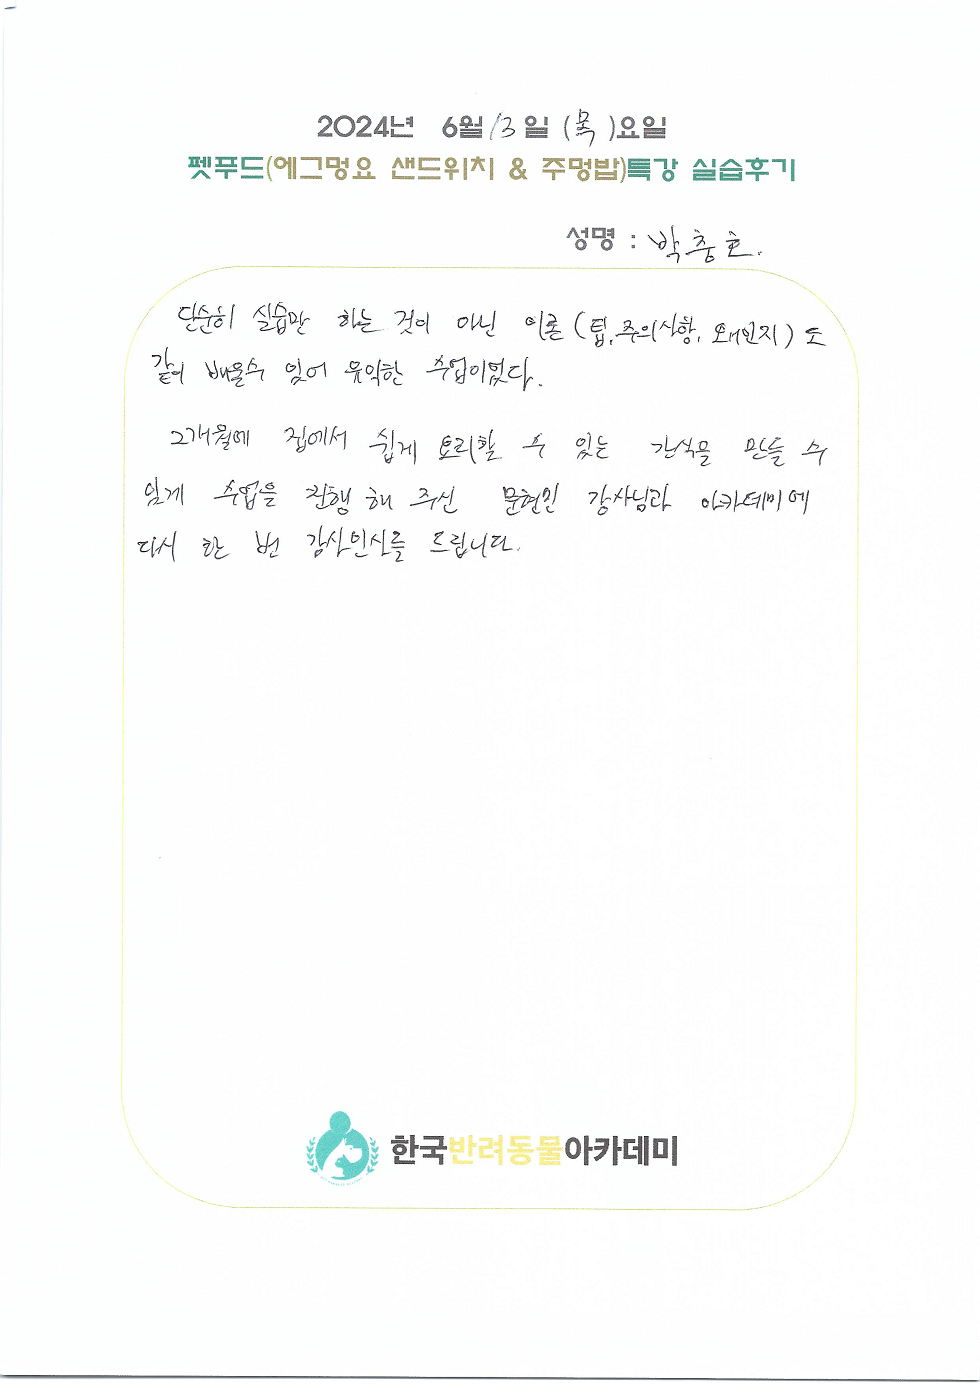 2024년 6월 13일 (목)요일
펫푸드(에그멍요 샌드위치 & 주멍밥)특강 실습후기
성명 : 박충호.
단순히 실습만 하는 것이 아닌 이론(팁,주의사항, 왜인지)도
같이 배울수 있어 유익한 수업이었다.
2개월에 집에서 쉽게 요리할 수 있는 간식을 만들 수
있게 수업을 진행 해 주신 문현민 강사님과 아카데미에
다시 한 번 감사인사를 드립니다.
한국반려동물아카데미